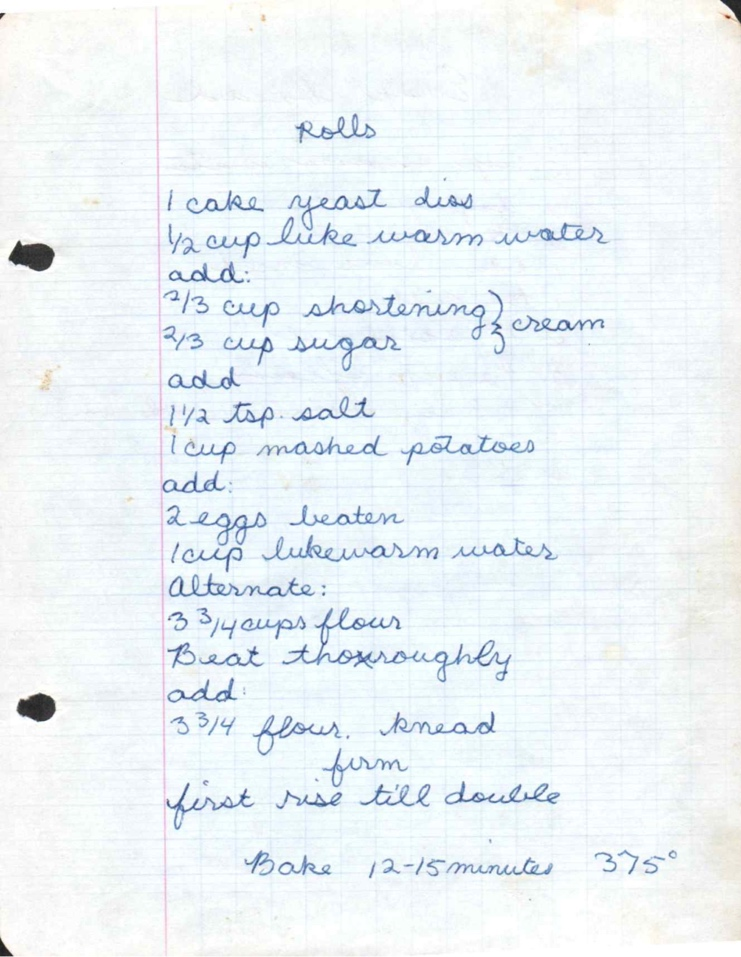 Rolls
1 cake yeast diss
1/2 cup luke warm water
add:
2/3 cup shortening } cream
2/3 cup sugar
add
1 1/2 tsp. salt
1 cup mashed potatoes
add:
2 eggs beaten
1 cup lukewarm water
Alternate:
3 3/4 cups flour
Beat thoroughly
add:
3 3/4 flour. knead
firm
first rise till double
Bake 12-15 minutes 375°